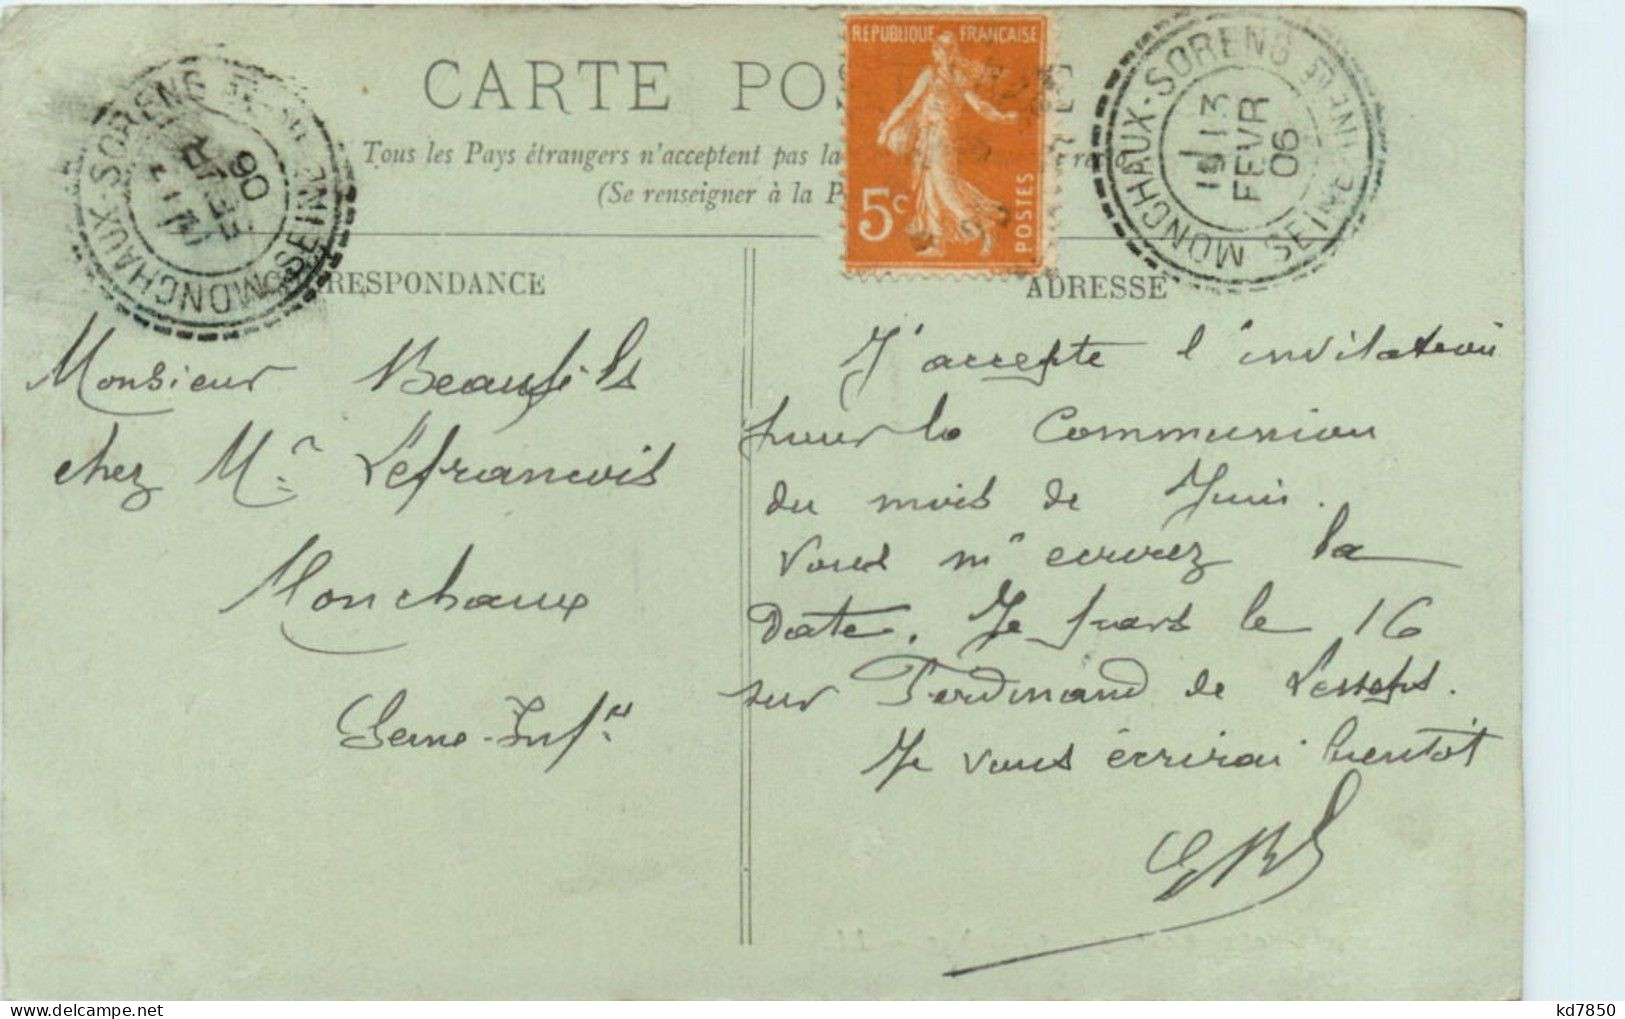 CARTE POS
Tous les Pays étrangers n'acceptent pas la
(Se renseigner à la P
REPUBLIQUE FRANÇAISE
5c
POSTES
MONCHAUX-SORENG SEINE-INFRE
13
FEVR
06
MONCHAUX-SORENG SEINE
FEVR
06
RESPONDANCE
ADRESSE
Monsieur Beaufils
chez Mr Lefrancois
Monchaux
Seine-Infre
J'accepte l'invitation
pour la Communion
du mois de Juin.
Vous m'ecrirez la
Date. Je pars le 16
sur Ferdinand de Lesseps.
Je vous écrirai bientôt
kd7850